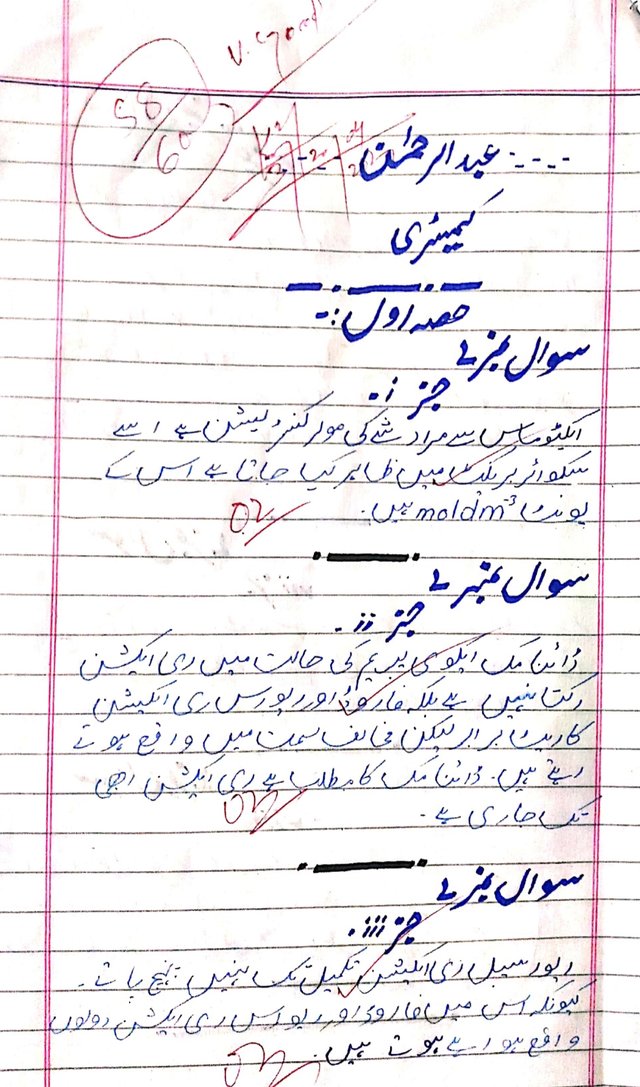 V. Good
58/60
عبدالرحمٰن
کیمیٹری
حصہ اول:-
سوال نمبر 2
جز i.
ایکٹو ماس سے مراد شے کی مولر کنسنٹریشن ہے اسے
سکوائر بریکٹ میں ظاہر کیا جاتا ہے اس کے
یونٹ moldm⁻³ ہیں.
02
سوال نمبر 2
جز ii.
ڈائنامک ایکوی لبریم کی حالت میں ری ایکشن
رکتا نہیں ہے بلکہ فارورڈ اور ریورس ری ایکشن
کا ریٹ برابر لیکن مخالف سمت میں واقع ہوتے
رہتے ہیں. ڈائنامک کا مطلب ہے ری ایکشن ابھی
تک جاری ہے.
02
سوال نمبر 2
جز iii.
ریورسیبل ری ایکشن تکمیل تک نہیں پہنچ پاتے.
کیونکہ اس میں فارورڈ اور ریورس ری ایکشن دونوں
واقع ہو رہے ہوتے ہیں.
02